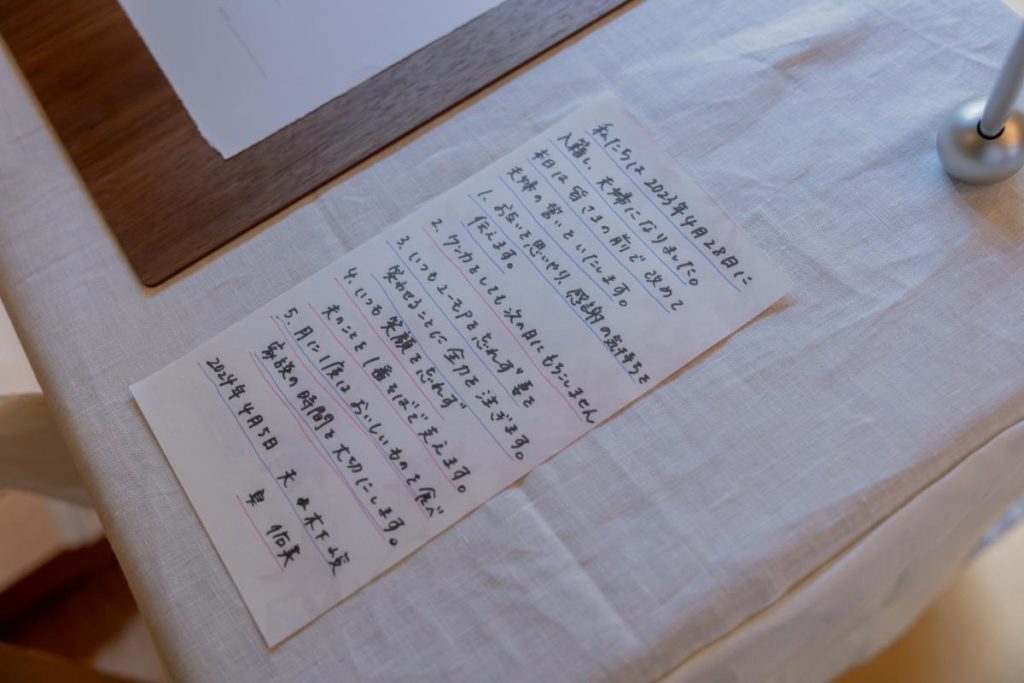 私たちは 2023年4月28日に
入籍し、夫婦になりました。
本日は 皆さまの前で 改めて
夫婦の誓いといたします。
1. お互いを思いやり、感謝の気持ちを
伝えます。
2. ケンカをしても 次の日にもちこしません
3. いつもユーモアを忘れず 妻を
笑わせることに 全力を注ぎます。
4. いつも 笑顔を忘れず
夫のことを 1番そばで支えます。
5. 月に1度は おいしいものを食べ
家族の時間を大切にします。
2024年4月5日 夫 木下